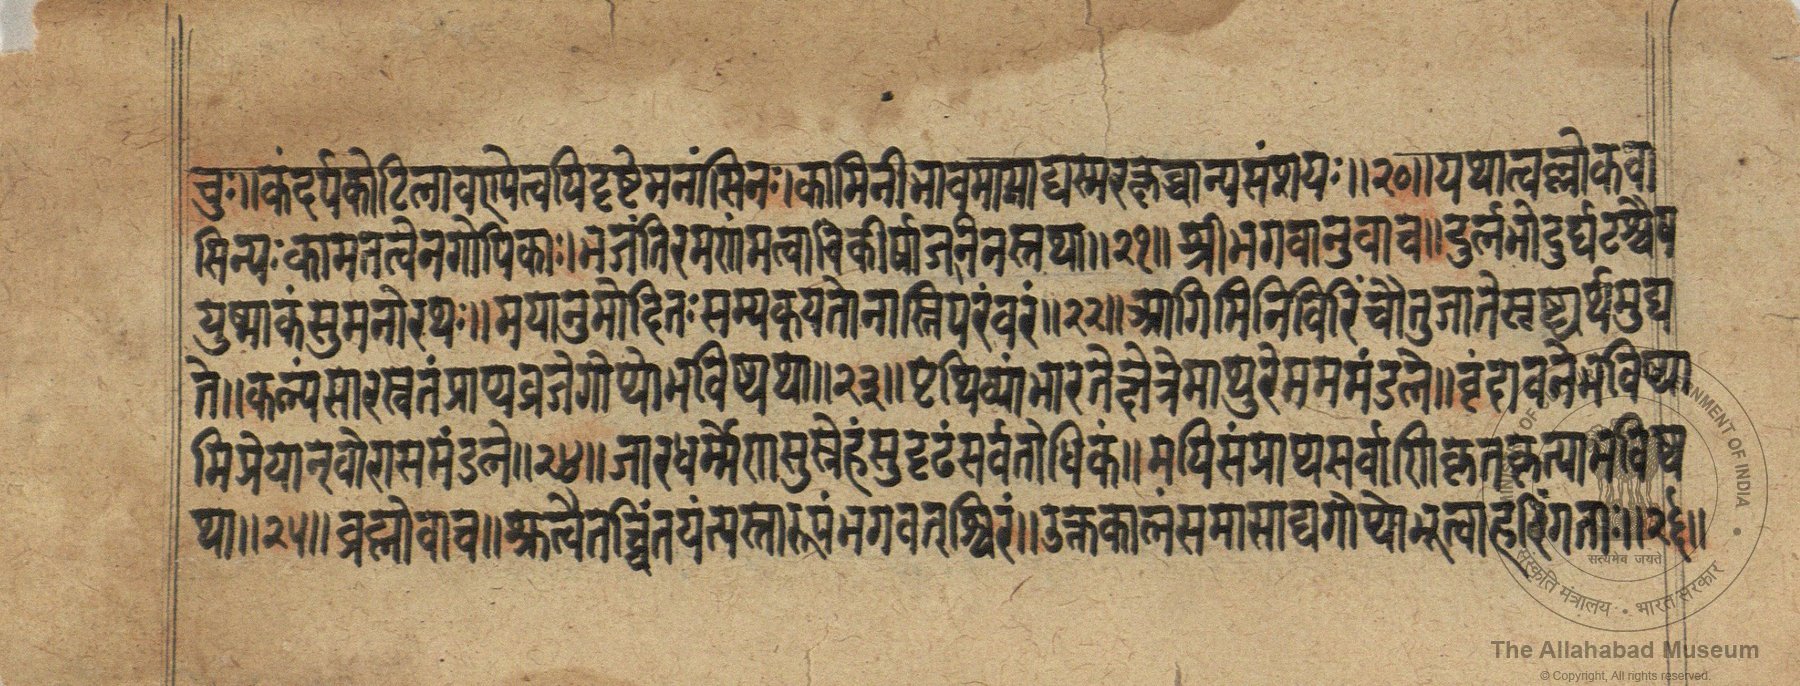 चुः॥कंदर्पकोटिलावण्येत्वयिदृष्टेमनांसिनः।कामिनीभावमासाद्यस्मरक्षुब्धान्यसंशयः॥२०॥यथात्वल्लोकवा
सिन्यःकामतत्वेनगोपिकाः।भजंतिरमणंमत्वाचिकीर्षाजनिनस्तथा॥२१॥श्रीभगवानुवाच॥दुर्लभोदुर्घटश्चैष
युष्माकंसुमनोरथः॥मयानुमोदितःसम्यक्सत्योनास्तिपरंवरं॥२२॥आगमिनिविरिंचौतुजातेसृष्ट्यर्थमुद्य
ते॥कल्पंसारस्वतंप्राप्यव्रजेगोप्योभविष्यथा॥२३॥पृथिव्यांभारतेक्षेत्रेमाथुरेमममंडले॥वृंदावनेभविष्या
मिप्रेयान्वोरासमंडले॥२४॥जारधर्मेणसुस्नेहंसुदृढंसर्वतोधिकं॥मयिसंप्राप्यसर्वापिकृतकृत्याभविष्य
था॥२५॥ब्रह्मोवाच॥श्रुत्वैतच्चिंतयंत्यस्तारूपंभगवतश्चिरं॥उक्तकालंसमासाद्यगोप्योभूत्वाहरिंगताः॥२६॥
सत्यमेव जयते
संस्कृति मंत्रालय • भारत सरकार
MINISTRY OF CULTURE • GOVERNMENT OF INDIA
The Allahabad Museum
© Copyright, All rights reserved.